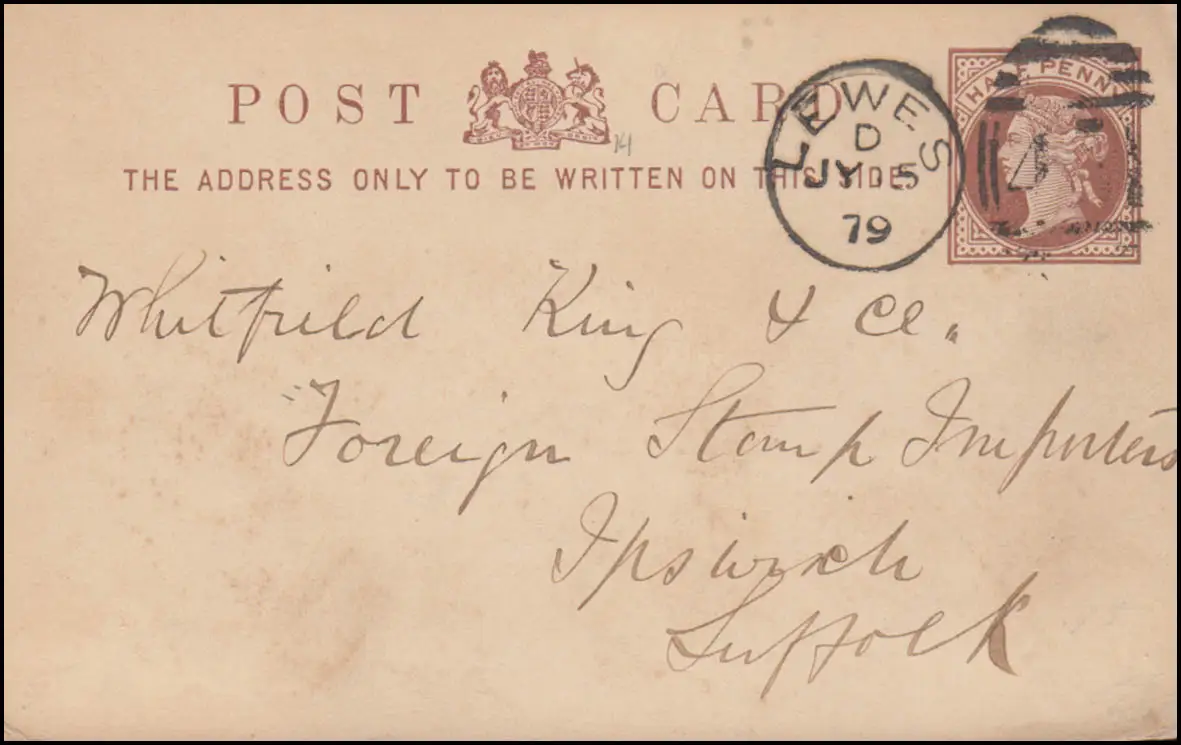 POST CARD
THE ADDRESS ONLY TO BE WRITTEN ON THIS SIDE
HALF PENNY
LEWES
D
JY 5
79
Whitfield King & Co.
Foreign Stamp Importers
Ipswich
Suffolk